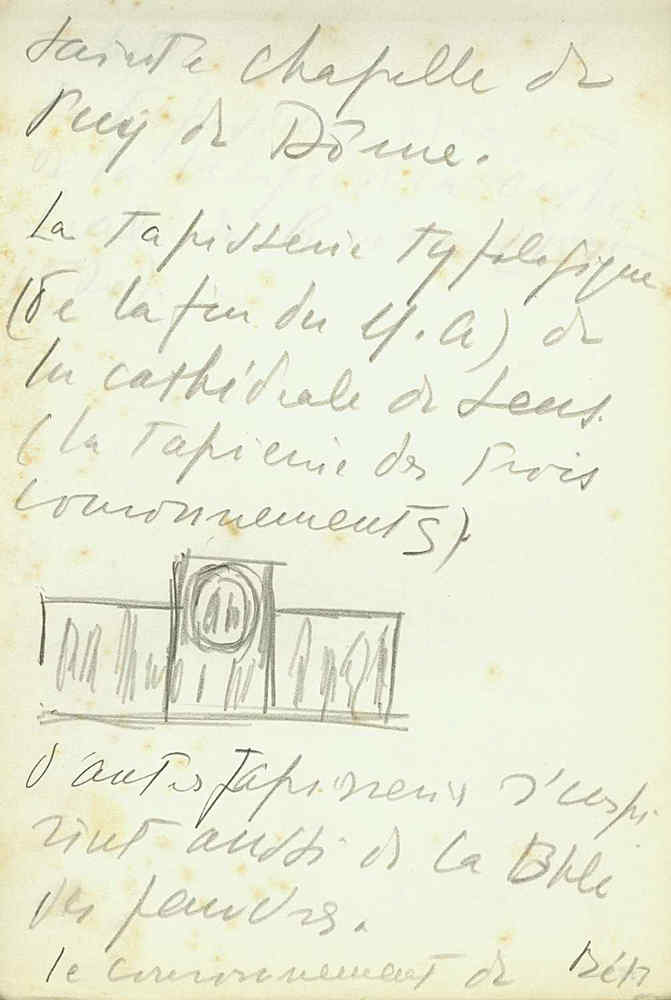 sainte chapelle de
Puy de Dôme.
La tapisserie typologique
(de la fin du M.A) de
la cathédrale de Sens.
(la tapisserie des trois
couronnements).
D'autres tapisseries s'inspi
rent aussi de la Bible
des pauvres.
le couronnement de